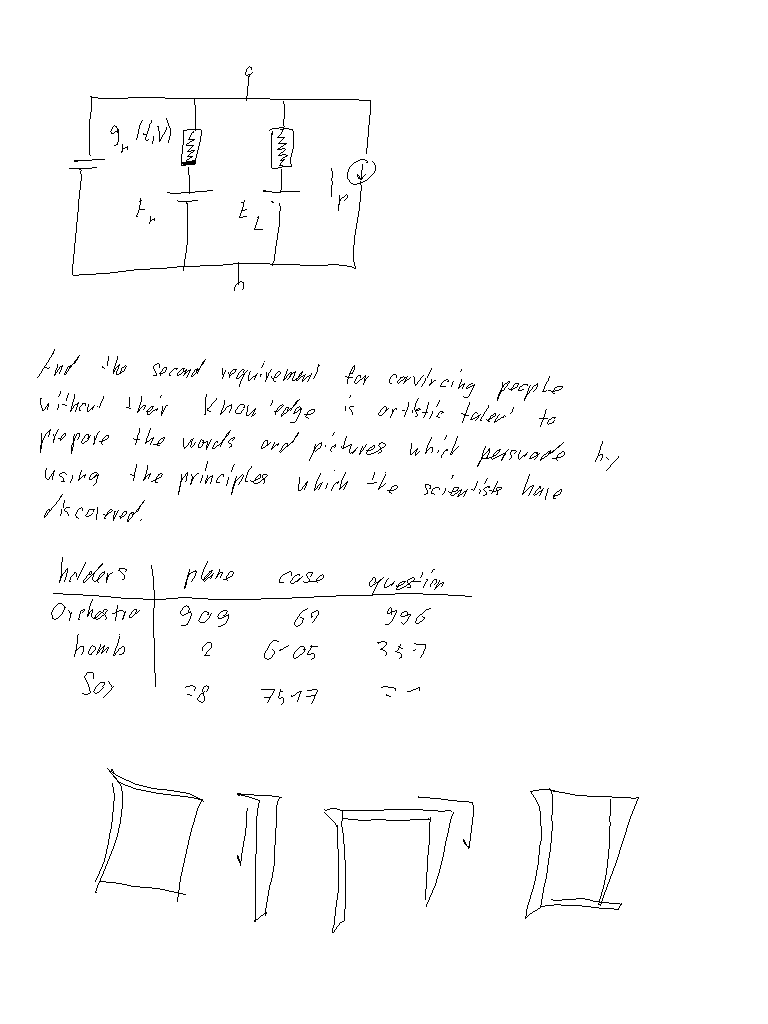 g_n (t,V)
I_p
E_n
E_L
And the second requirement for convincing people
without their knowledge is artistic talent to
prepare the words and pictures which persuade by
using the principles which the scientists have
discovered.
holders plane case question
Orchestra 909 62 996
bomb 2 6-05 357
Soy =8